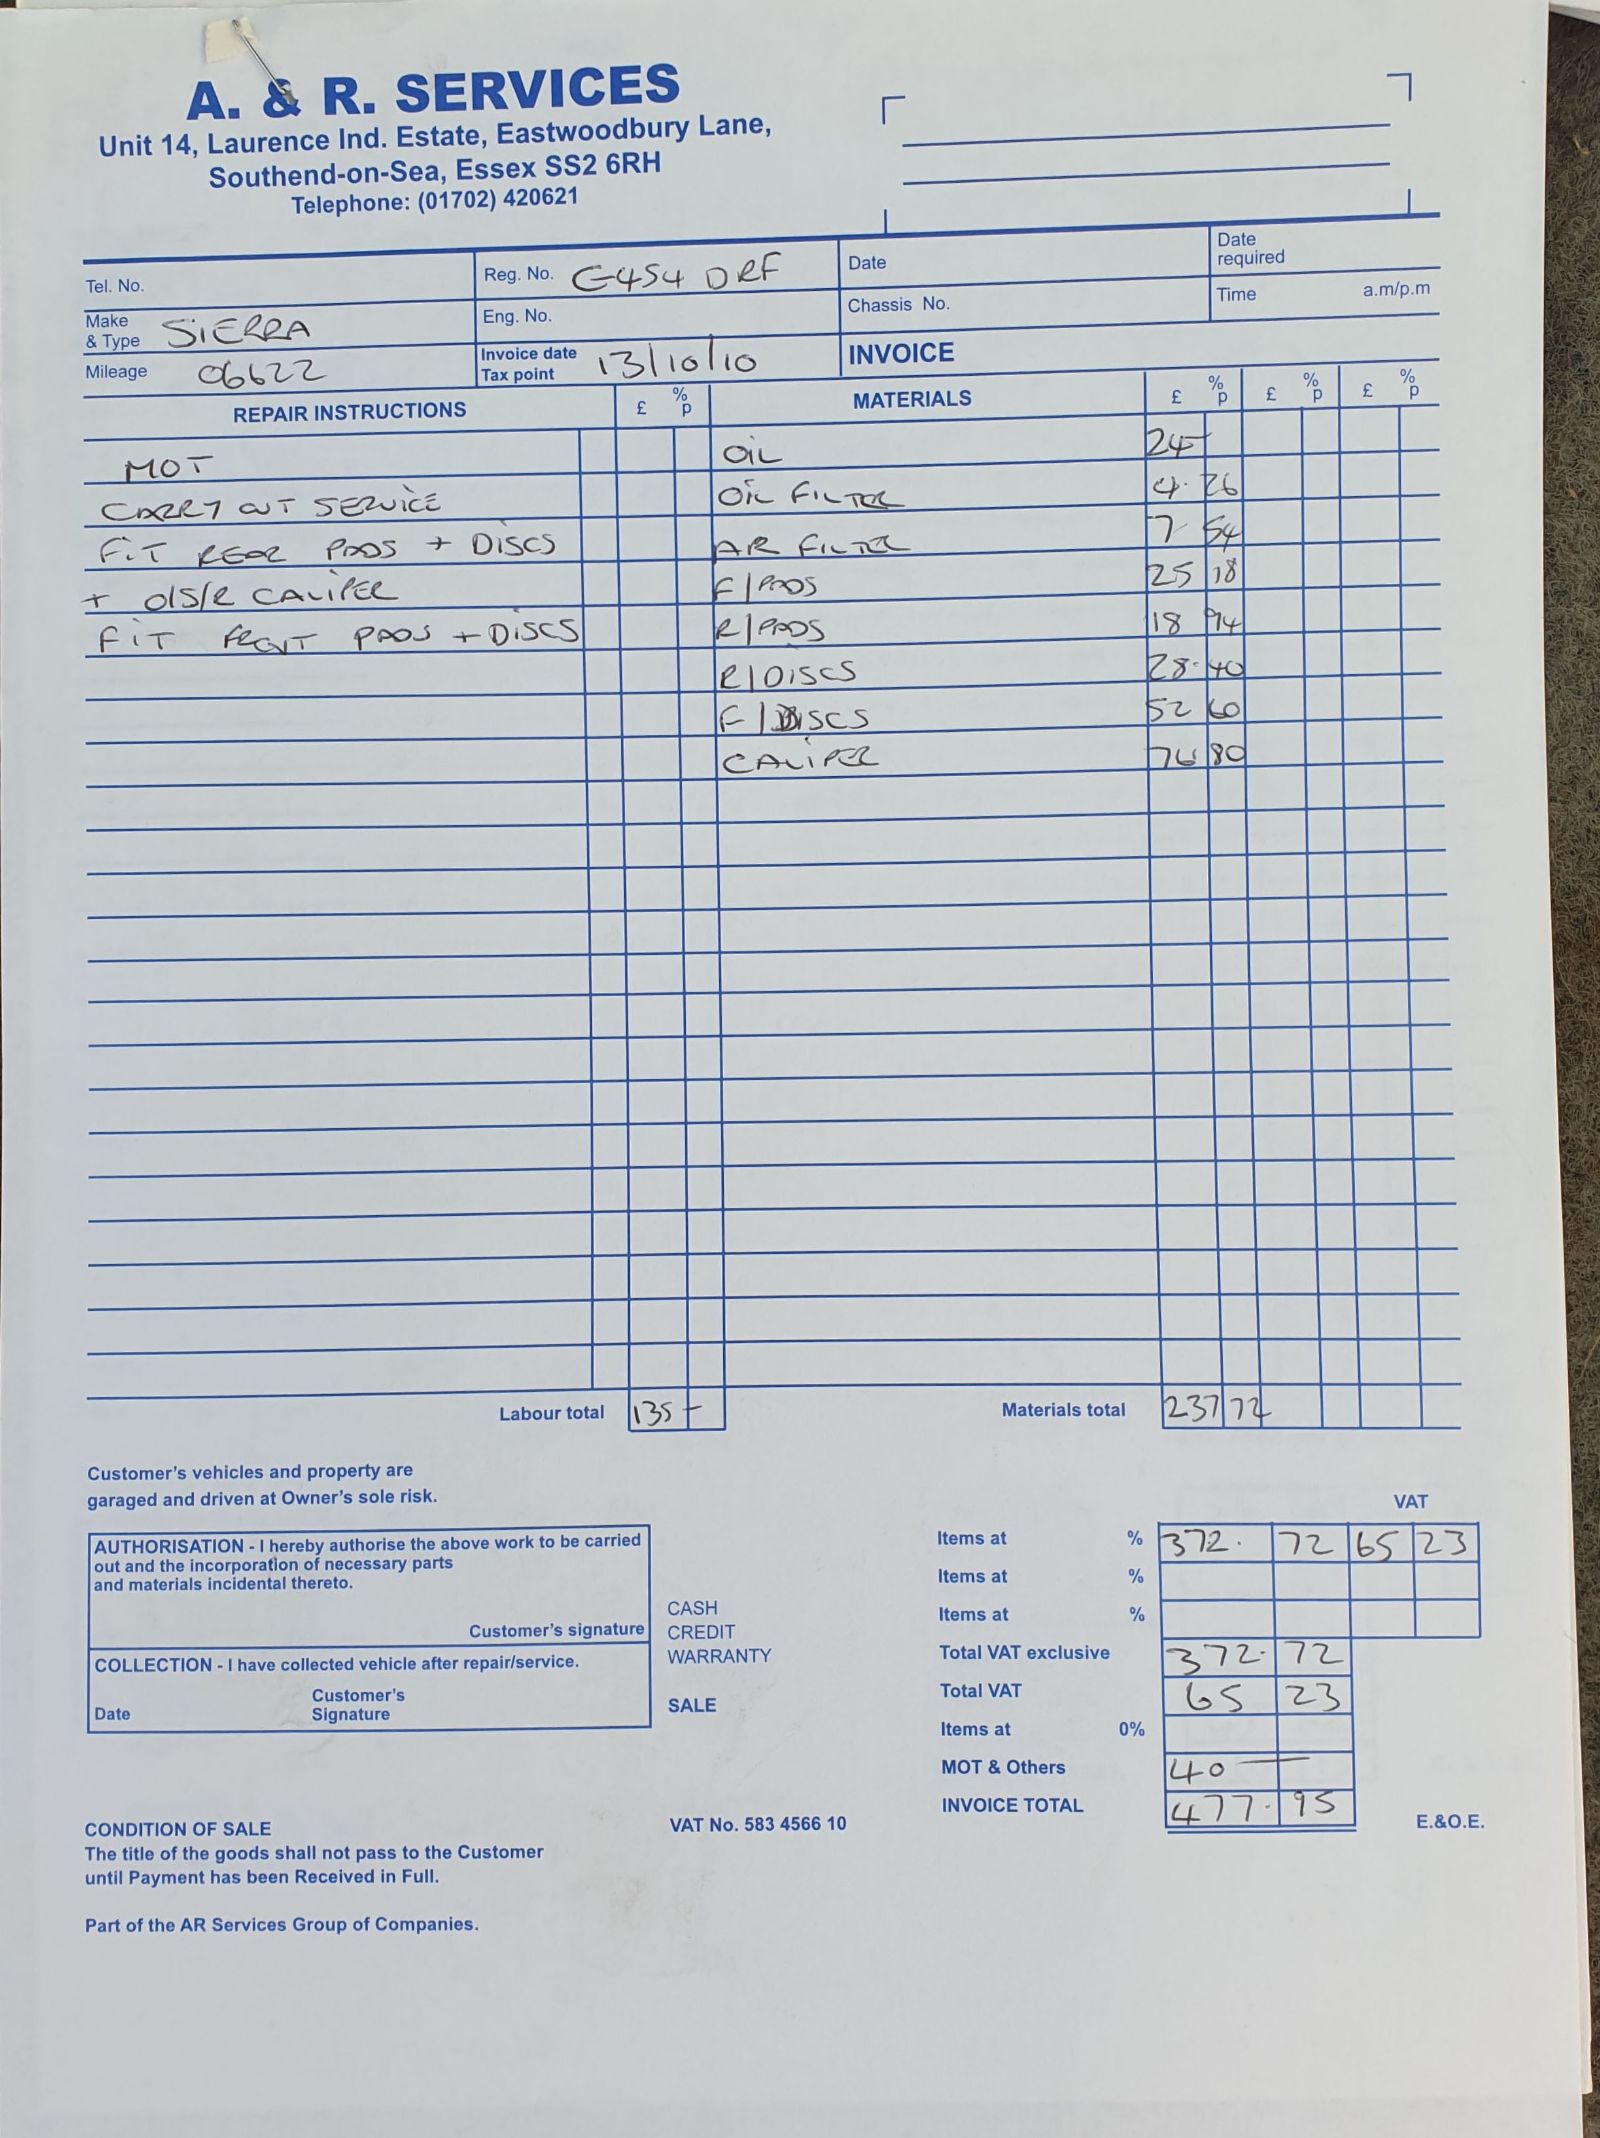 A. & R. SERVICES
Unit 14, Laurence Ind. Estate, Eastwoodbury Lane,
Southend-on-Sea, Essex SS2 6RH
Telephone: (01702) 420621
Tel. No. Reg. No. G454 DRF Date Date required
Make & Type SIERRA Eng. No. Chassis No. Time a.m/p.m
Mileage 06622 Invoice date Tax point 13/10/10 INVOICE
REPAIR INSTRUCTIONS £ % p MATERIALS £ % p £ % p £ % p
MOT OIL 24 -
CARRY OUT SERVICE OIL FILTER 4. 26
FIT REAR PADS + DISCS AIR FILTER 7 54
+ O/S/R CALIPER F/PADS 25 18
FIT FRONT PADS + DISCS R/PADS 18 94
R/DISCS 28. 40
F/DISCS 52 60
CALIPER 76 80
Labour total 135 - Materials total 237 72
Customer's vehicles and property are
garaged and driven at Owner's sole risk.
VAT
AUTHORISATION - I hereby authorise the above work to be carried
out and the incorporation of necessary parts
and materials incidental thereto.
Customer's signature
COLLECTION - I have collected vehicle after repair/service.
Date Customer's Signature
CASH
CREDIT
WARRANTY
SALE
Items at % 372. 72 65 23
Items at %
Items at %
Total VAT exclusive 372. 72
Total VAT 65 23
Items at 0%
MOT & Others 40 —
INVOICE TOTAL 477. 95
E.&O.E.
VAT No. 583 4566 10
CONDITION OF SALE
The title of the goods shall not pass to the Customer
until Payment has been Received in Full.
Part of the AR Services Group of Companies.